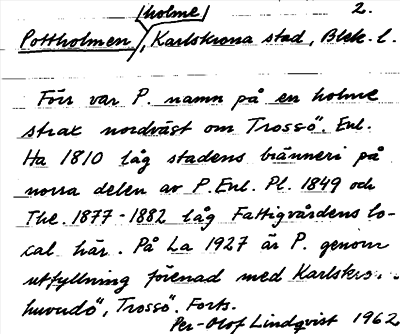 /holme/ 2.
Pottholmen, Karlskrona stad, Blek. l.
Förr var P. namn på en holme
strax nordväst om Trossö". Enl.
Ha 1810 låg stadens bränneri på
norra delen av P. Enl. Pl. 1849 och
The. 1877-1882 låg Fattigvårdens lo-
cal här. På La 1927 är P. genom
utfyllning förenad med Karlskro..
huvudö", Trossö". Forts.
Per-Olof Lindqvist 1962